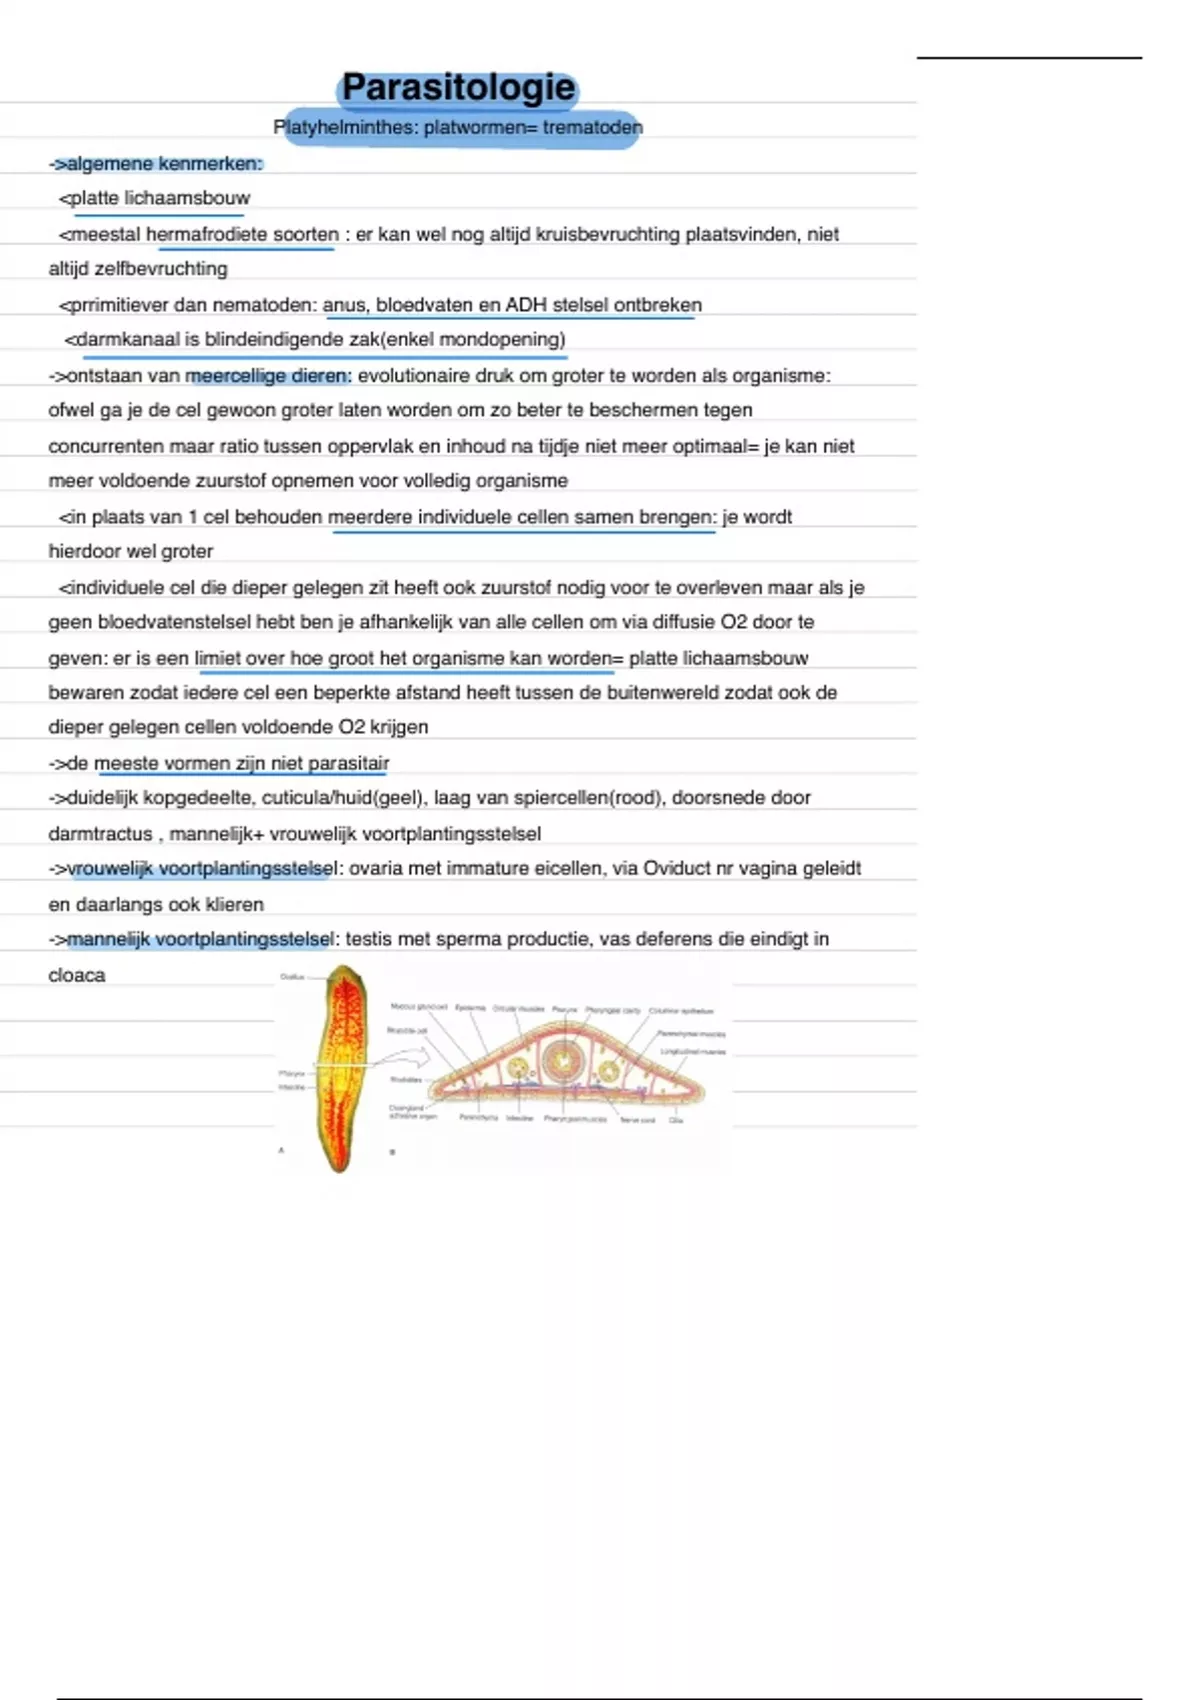 Parasitologie
Platyhelminthes: platwormen= trematoden
->algemene kenmerken:
<platte lichaamsbouw
<meestal hermafrodiete soorten : er kan wel nog altijd kruisbevruchting plaatsvinden, niet
altijd zelfbevruchting
<prrimitiever dan nematoden: anus, bloedvaten en ADH stelsel ontbreken
<darmkanaal is blindeindigende zak(enkel mondopening)
->ontstaan van meercellige dieren: evolutionaire druk om groter te worden als organisme:
ofwel ga je de cel gewoon groter laten worden om zo beter te beschermen tegen
concurrenten maar ratio tussen oppervlak en inhoud na tijdje niet meer optimaal= je kan niet
meer voldoende zuurstof opnemen voor volledig organisme
<in plaats van 1 cel behouden meerdere individuele cellen samen brengen: je wordt
hierdoor wel groter
<individuele cel die dieper gelegen zit heeft ook zuurstof nodig voor te overleven maar als je
geen bloedvatenstelsel hebt ben je afhankelijk van alle cellen om via diffusie O2 door te
geven: er is een limiet over hoe groot het organisme kan worden= platte lichaamsbouw
bewaren zodat iedere cel een beperkte afstand heeft tussen de buitenwereld zodat ook de
dieper gelegen cellen voldoende O2 krijgen
->de meeste vormen zijn niet parasitair
->duidelijk kopgedeelte, cuticula/huid(geel), laag van spiercellen(rood), doorsnede door
darmtractus , mannelijk+ vrouwelijk voortplantingsstelsel
->vrouwelijk voortplantingsstelsel: ovaria met immature eicellen, via Oviduct nr vagina geleidt
en daarlangs ook klieren
->mannelijk voortplantingsstelsel: testis met sperma productie, vas deferens die eindigt in
cloaca
Epidermis Circular muscles Pharynx Pharyngeal cavity
Parenchymal muscles
Longitudinal muscles
Pharynx
Intestine
Rhabdites
Parenchyma Intestine Nerve cord Cilia
A
B